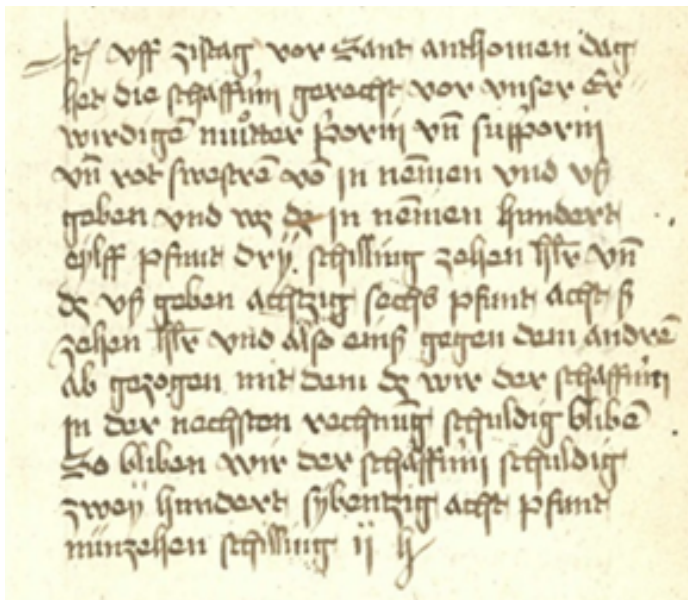 It uff zistag vor Sant anthonien dag
het die schaffnin gerechet vor unser Er
wirdigē muͦtter p̄orin uñ supp̄orin
uñ rot swestrē vō in nēmen und uß
geben und wz dz in nēmen hundert
eylff pfunt drÿ schilling zehen hlr̄ uñ
dz uß geben achtzig sechs pfunt acht ß
zehen hlr̄ und also eins gegen dem andrē
ab gezogen mit dem dz wir der schaffnin
in der nechsten rechnūg schuldig blibē
So bliben wir der schaffnin schuldig
zweÿ hundert sÿbentzig acht pfunt
nünzehen schilling ij h